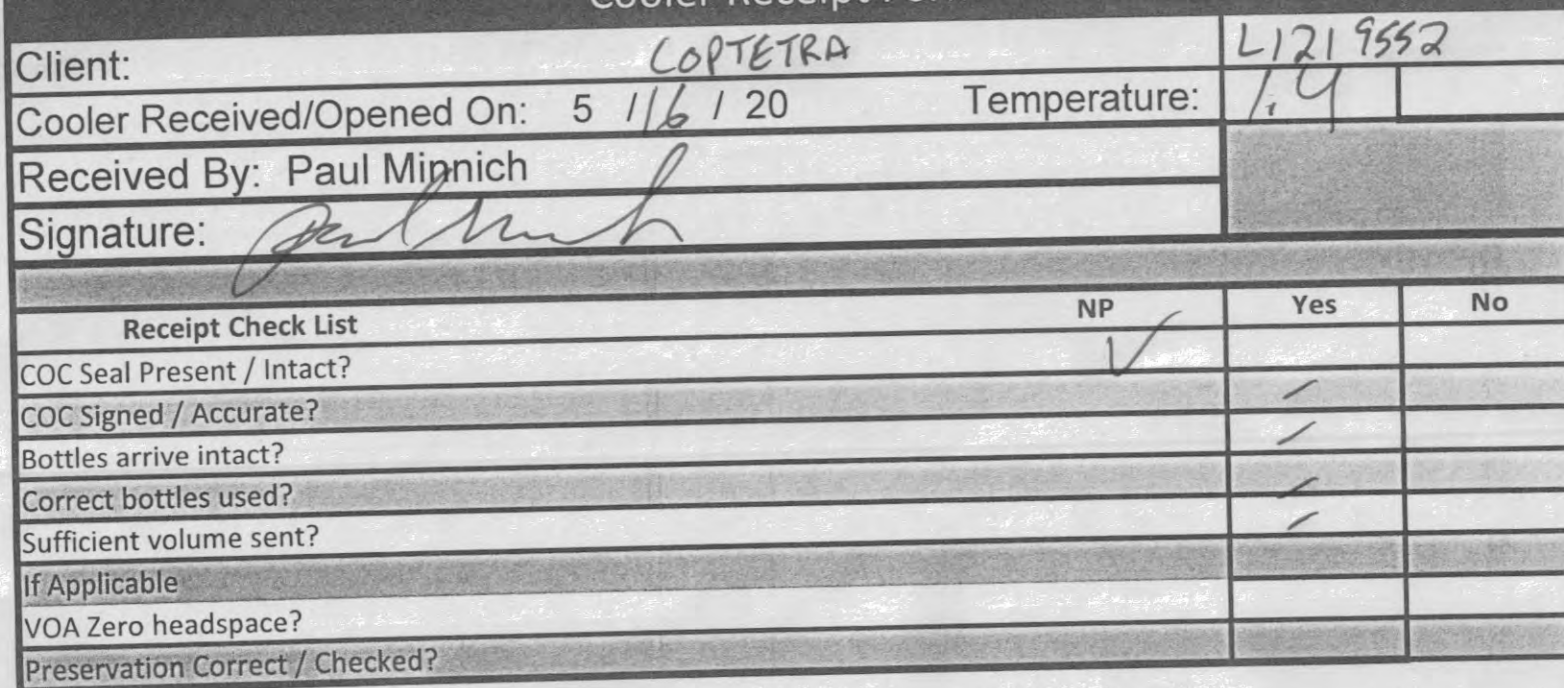 Cooler Receipt
Client: COPTETRA L1219552
Cooler Received/Opened On: 5 /16 / 20 Temperature: 1.4
Received By: Paul Minnich
Signature:
Receipt Check List NP Yes No
COC Seal Present / Intact? ✓
COC Signed / Accurate? /
Bottles arrive intact? /
Correct bottles used? /
Sufficient volume sent? /
If Applicable
VOA Zero headspace?
Preservation Correct / Checked?